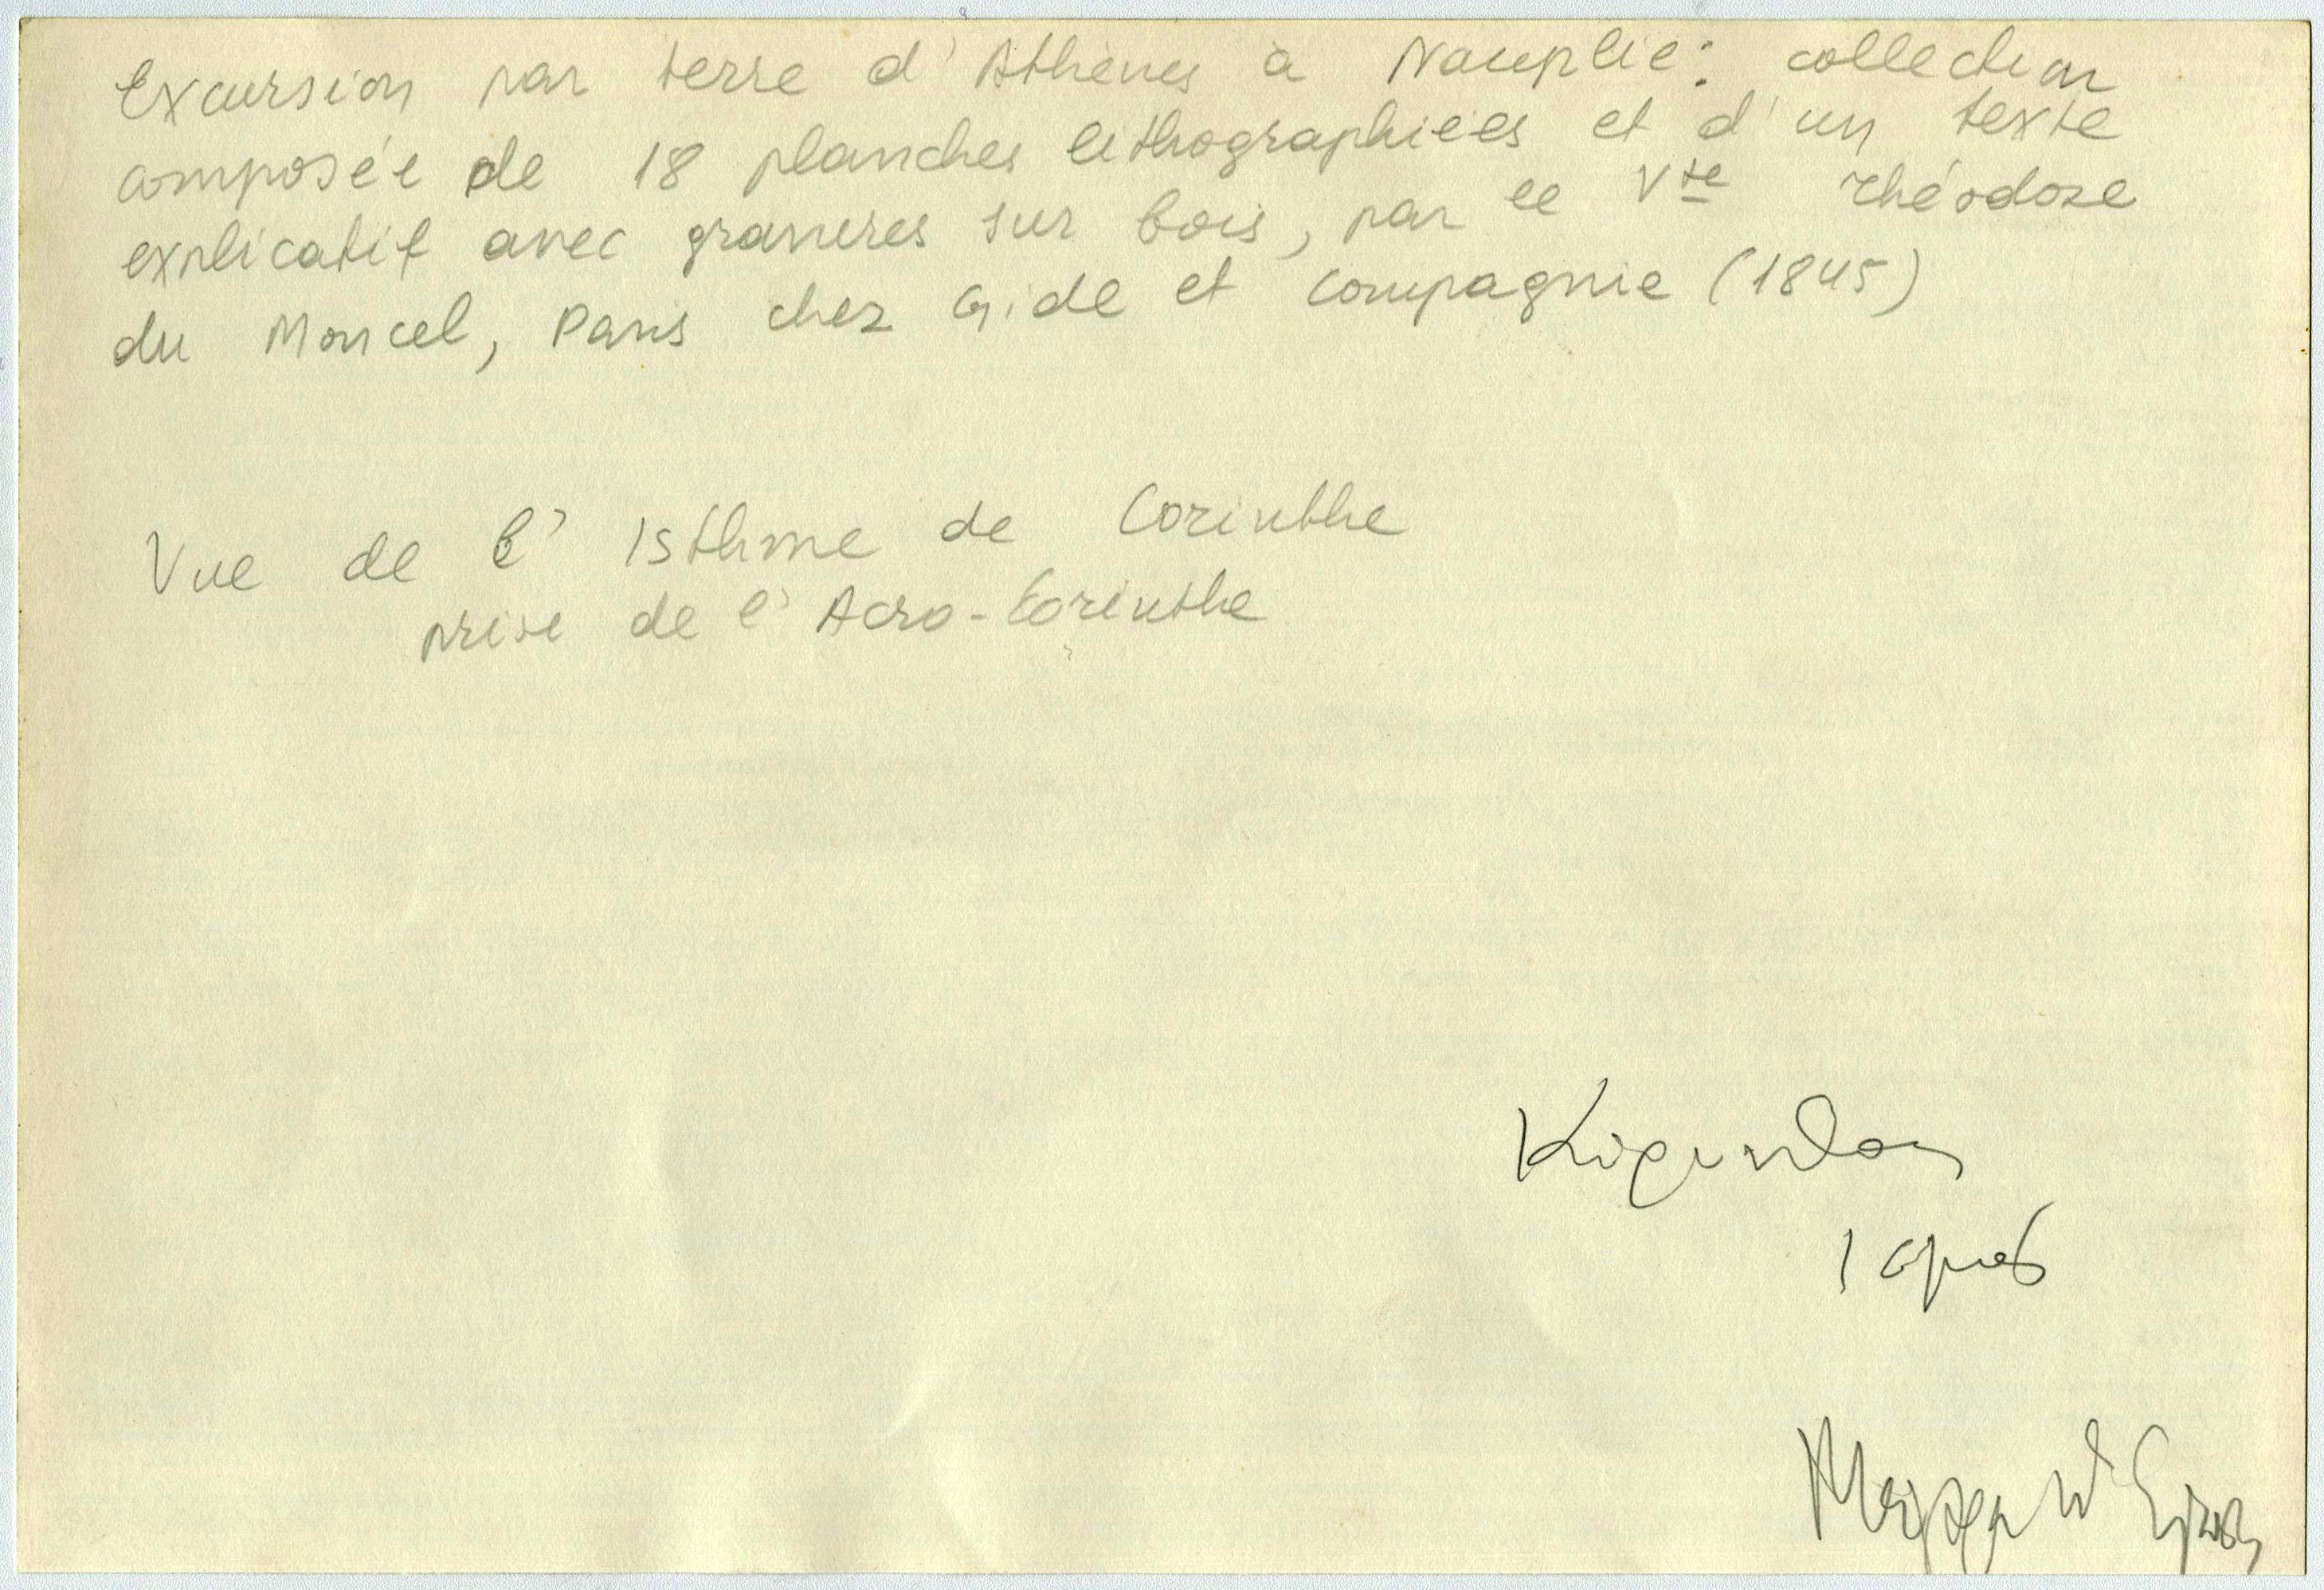 Excursion par terre d'Athènes à Nauplie: collection
composée de 18 planches lithographiées et d'un texte
explicatif avec gravures sur bois, par le Vte Théodose
du Moncel, Paris chez Gide et Compagnie (1845)
Vue de l'Isthme de Corinthe
prise de l'Acro-Corinthe
Κόρινθος